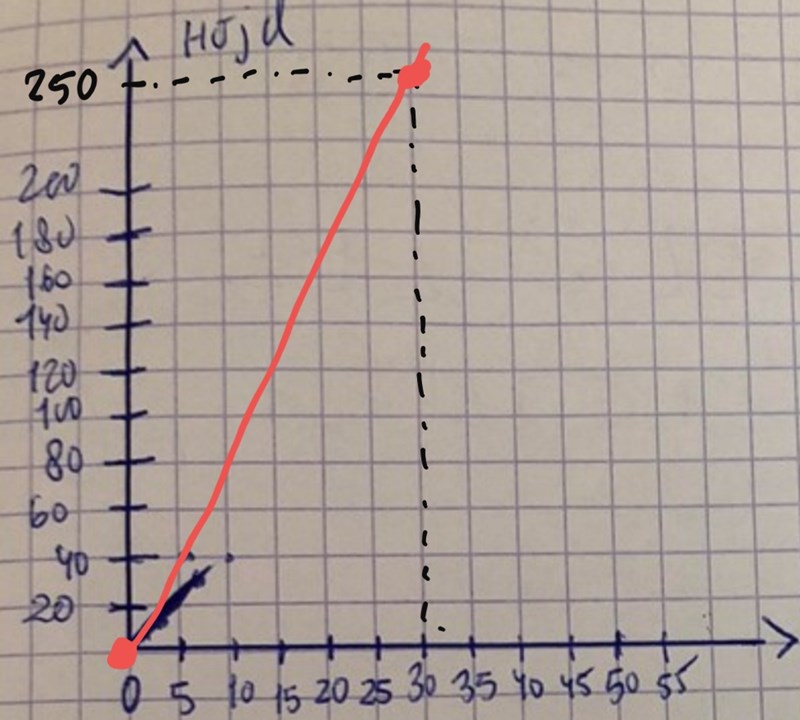 Höjd
250
200
180
160
140
120
100
80
60
40
20
0 5 10 15 20 25 30 35 40 45 50 55